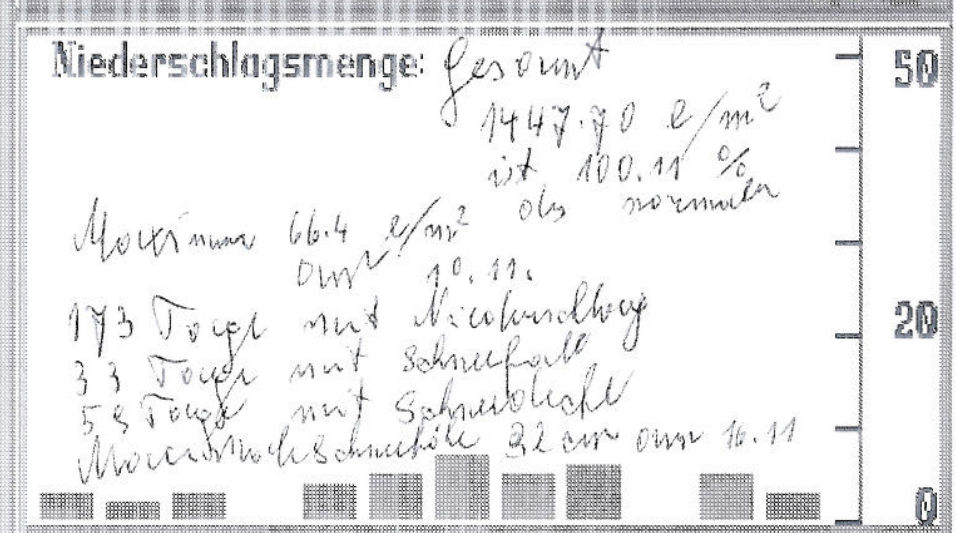 Niederschlagsmenge: Gesamt
50
1447.70 l/m²
ist 100.11 %
des normalen
Maximum 66.4 l/m²
am 10.11.
173 Tage mit Niederschlag
20
33 Tage mit Schneefall
59 Tage mit Schneedecke
Maximale Schneehöhe 32 cm am 16.11
0